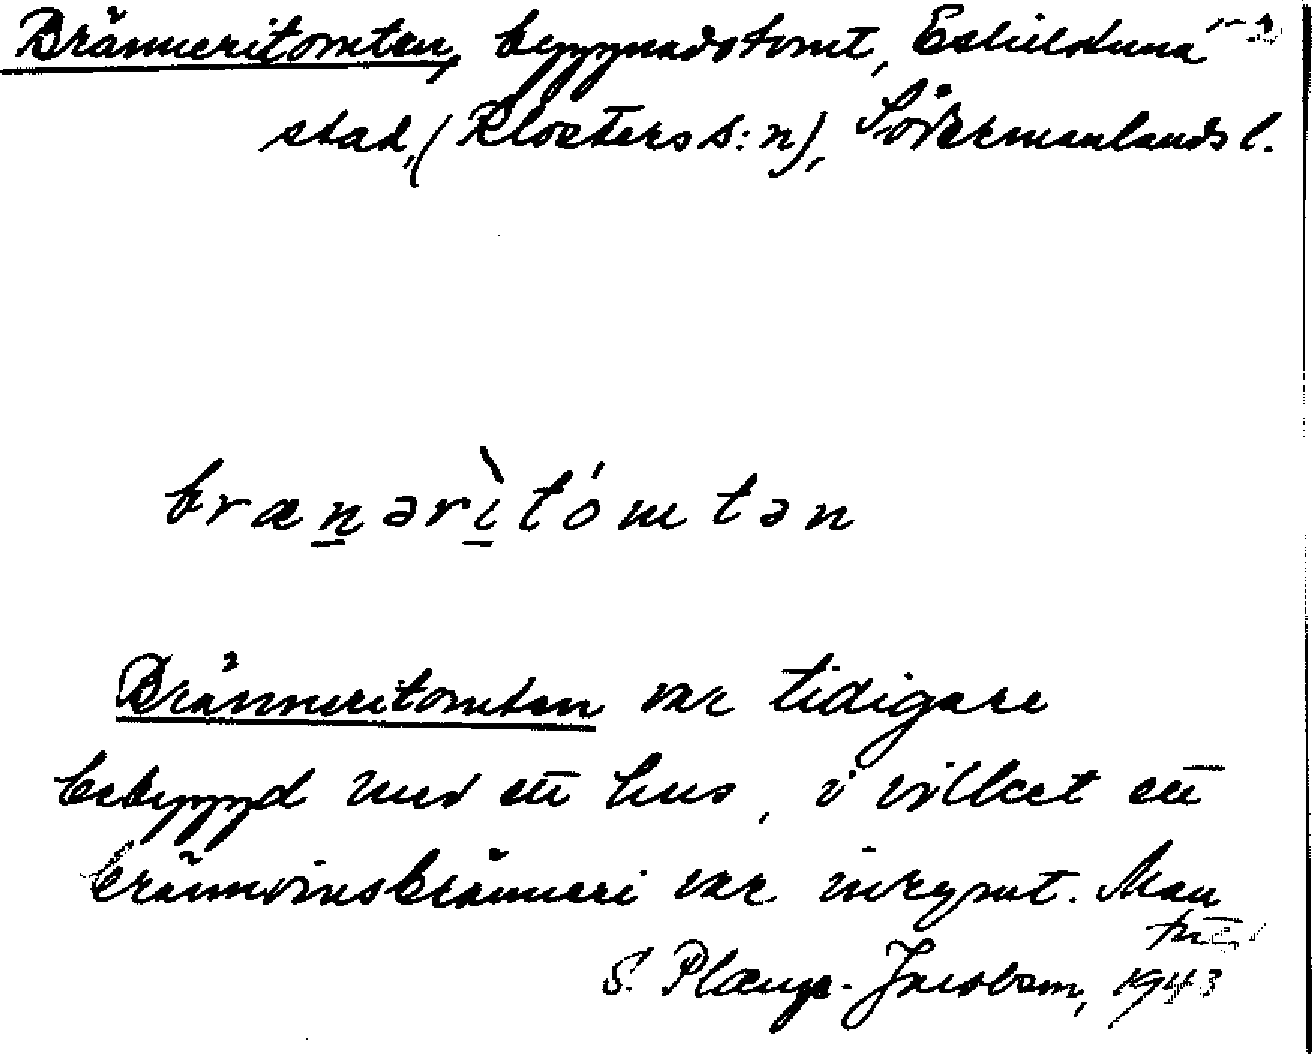 Bränneritomten, byggnadstomt, Eskilstuna
stad, (Klosters s:n), Södermanlands l.
brænərìtómtən
Bränneritomten var tidigare
bebyggd med ett hus, i vilket ett
brännvinsbränneri var inrymt. Man
S. Plænge-Jacobson, 1943